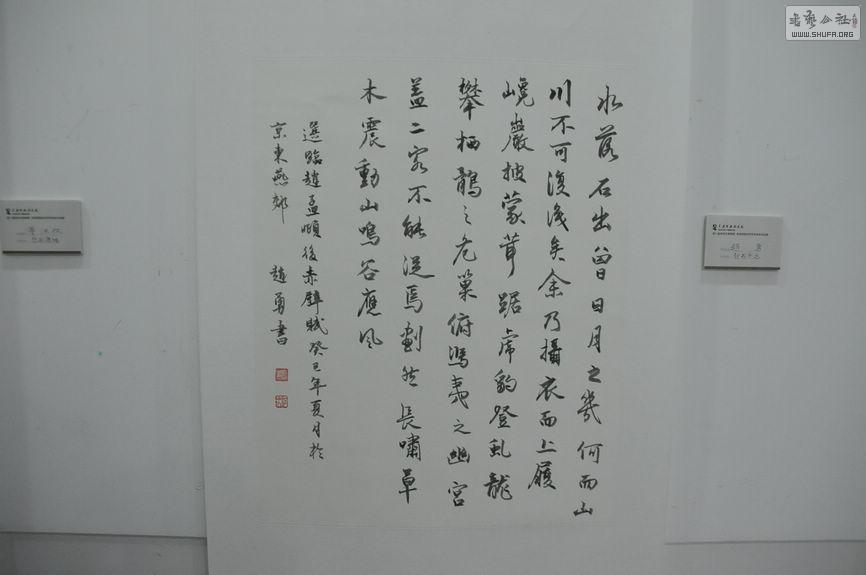 水落石出曾日月之幾何而山
川不可復識矣余乃攝衣而上履
巉巖披蒙茸踞虎豹登虬龍
攀栖鶻之危巢俯馮夷之幽宮
盖二客不能從焉劃然長嘯草
木震動山鳴谷應風
選臨趙孟頫後赤壁賦癸巳年夏月於
京東燕郊 趙勇書
書藝公社
WWW.SHUFA.ORG